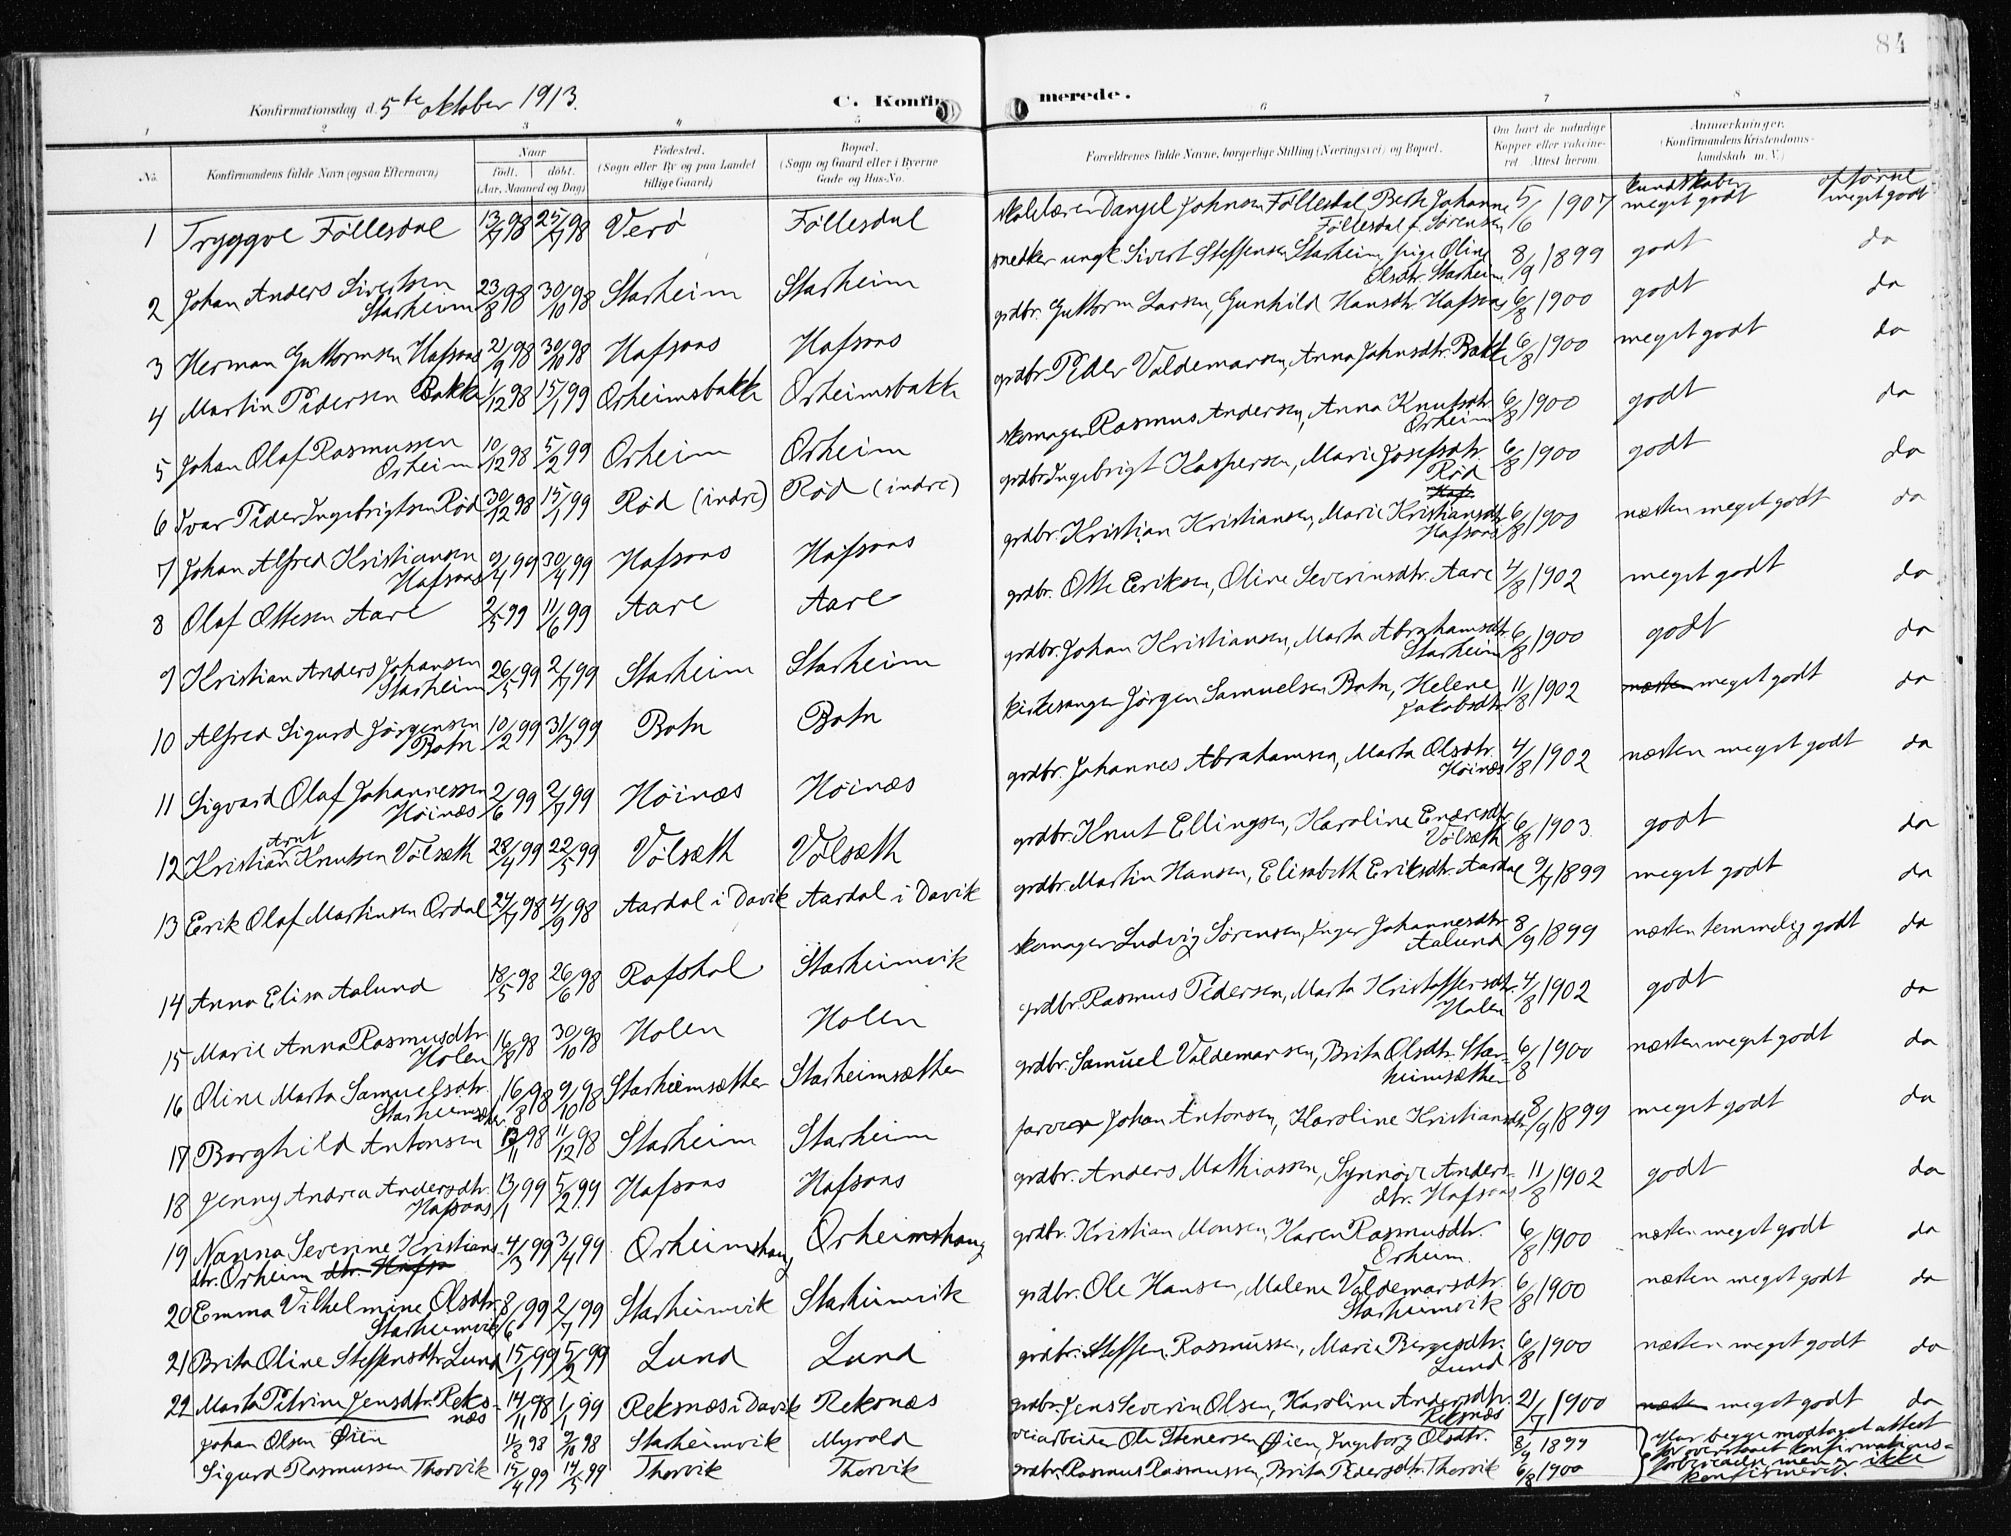 84
Konfirmationsdag d. 5te oktober 1913.
C. Konfirmerede.
1 2 3 4 5 6 7 8
No. Konfirmandens fulde Navn (ogsaa Efternavn) Naar født. døbt. (Aar, Maaned og Dag) Fødested. (Sogn eller By og paa Landet tillige Gaard) Bopæl. (Sogn og Gaard eller i Byerne Gade og Hus-No. Forældrenes fulde Navne, borgerlige Stilling (Næringsvei) og Bopæl. Om havt de naturlige Kopper eller vaccineret Attest herom. Anmærkninger. (Konfirmandens Kristendomskundskab m. V.)
kundskaber opførsel
1 Tryggve Föllesdal 13/7 98 25/7 98 Verö Föllesdal skolelærer Danjel Johnsen Föllesdal, Berte Johanne Föllesdal f. Sørensen 5/6 1907 meget godt meget godt
2 Johan Anders Sivertsen Starheim 23/8 98 30/10 98 Starheim Starheim snedker ungk. Sivert Steffensen Starheim, pige Oline Olsdtr. Starheim 8/9 1899 godt do
3 Herman Guttormsen Hafsaas 21/9 98 30/10 98 Hafsaas Hafsaas grdbr. Guttorm Larsen, Gunhild Hansdtr. Hafsaas 6/8 1900 godt do
4 Martin Pedersen Bakke 1/12 98 15/1 99 Orheimsbakke Orheimsbakke grdbr. Peder Valdemarsen, Anna Johnsdtr. Bakke 6/8 1900 meget godt do
5 Johan Olaf Rasmussen Orheim 10/12 98 5/2 99 Orheim Orheim skomager Rasmus Andersen, Anna Knutsdtr. Orheim 6/8 1900 godt do
6 Ivar Peder Ingebrigtsen Rød 30/12 98 15/1 99 Rød (indre) Rød (indre) grdbr. Ingebrigt Kaspersen, Marie Josefsdtr. Rød 6/8 1900 godt do
7 Johan Alfred Kristiansen Hafsaas 9/4 99 30/4 99 Hafsaas Hafsaas grdbr. Kristian Kristiansen, Marie Kristiansdtr. Hafsaas 6/8 1900 næsten meget godt do
8 Olaf Ottesen Aare 2/5 99 11/6 99 Aare Aare grdbr. Otte Eriksen, Oline Severinsdtr. Aare 4/8 1902 meget godt do
9 Kristian Anders Johansen Starheim 26/5 99 2/7 99 Starheim Starheim grdbr. Johan Kristiansen, Marta Abrahamsdtr. Starheim 6/8 1900 godt do
10 Alfred Sigurd Jørgensen Botn 10/2 99 31/3 99 Botn Botn kirkesanger Jørgen Samuelsen Botn, Helene Jakobsdtr. 11/8 1902 næsten meget godt do
11 Sigvard Olaf Johannessen Höinæs 2/6 99 2/7 99 Höinæs Höinæs grdbr. Johannes Abrahamsen, Marta Olsdtr. Höinæs 4/8 1902 næsten meget godt do
12 Kristian Arnt Knutsen Völsæth 28/4 99 22/5 99 Völsæth Völsæth grdbr. Knut Ellingsen, Karoline Endresdtr. Völsæth 6/8 1903 godt do
13 Erik Olaf Martinsen Ordal 24/7 98 4/9 98 Aardal i Davik Aardal i Davik grdbr. Martin Hansen, Elisabeth Eriksdtr. Aardal 9/7 1899 meget godt do
14 Anna Elisa Aalund 18/5 98 26/6 98 Rafstal Starheimvik skomager Ludvig Sørensen, Inger Johannesdtr. Aalund 8/9 1899 næsten temmelig godt do
15 Marie Anna Rasmusdtr. Holen 16/8 98 30/10 98 Holen Holen grdbr. Rasmus Pedersen, Marta Kristoffersdtr. Holen 4/8 1902 godt do
16 Oline Marta Samuelsdtr. Starheimsæter 16/8 98 9/10 98 Starheimsæther Starheimsæther grdbr. Samuel Valdemarsen, Brita Olsdtr. Starheimsæther 6/8 1900 næsten meget godt do
17 Borghild Antonsen 12/11 98 11/12 98 Starheim Starheim farver Johan Antonsen, Karoline Kristiansdtr. 8/9 1899 meget godt do
18 Jenny Andrea Andersdtr. Hafsaas 13/1 99 5/2 99 Hafsaas Hafsaas grdbr. Anders Mathiassen, Synnøve Andersdtr. Hafsaas 11/8 1902 godt do
19 Nanna Severine Kristiansdtr. Orheim dtr. Hafsa 4/3 99 3/4 99 Orheimshaug Orheimshaug grdbr. Kristian Monsen, Karen Rasmusdtr. Orheim 6/8 1900 næsten meget godt do
20 Emma Vilhelmine Olsdtr. Starheimvik 8/6 99 2/7 99 Starheimvik Starheimvik grdbr. Ole Hansen, Malene Valdemarsdtr. Starheimvik 6/8 1900 næsten meget godt do
21 Brita Oline Steffensdtr. Lund 15/1 99 5/2 99 Lund Lund grdbr. Steffen Rasmussen, Marie Børgesdtr. Lund 6/8 1900 næsten meget godt do
22 Marta Petrine Jensdtr. Reksnæs 14/11 98 1/1 99 Reksnæs i Davik Reksnæs grdbr. Jens Severin Olsen, Karoline Andersdtr. Reksnæs 21/7 1900 næsten meget godt do
Johan Olsen Øien 11/8 98 9/10 98 Starheimvik Myrold veiarbeider Ole Stenersen Øien, Ingeborg Olsdtr. 8/9 1899
Sigurd Rasmussen Thorvik 15/4 99 14/5 99 Thorvik Thorvik grdbr. Rasmus Rasmussen, Brita Pedersdtr. Thorvik 6/8 1900
har begge modtaget attest for overstaaet konfirmationsforberedelse, men er ikke konfirmeret.